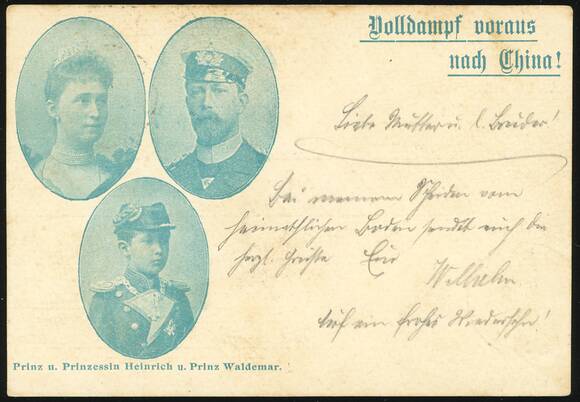 Volldampf voraus
nach China!
Liebe Mutter u. l. Bruder!
Bei meinem Scheiden vom
heimathlichen Boden sendet euch die
herzl. Grüße Euer
Wilhelm
Auf ein frohes Wiedersehn!
Prinz u. Prinzessin Heinrich u. Prinz Waldemar.